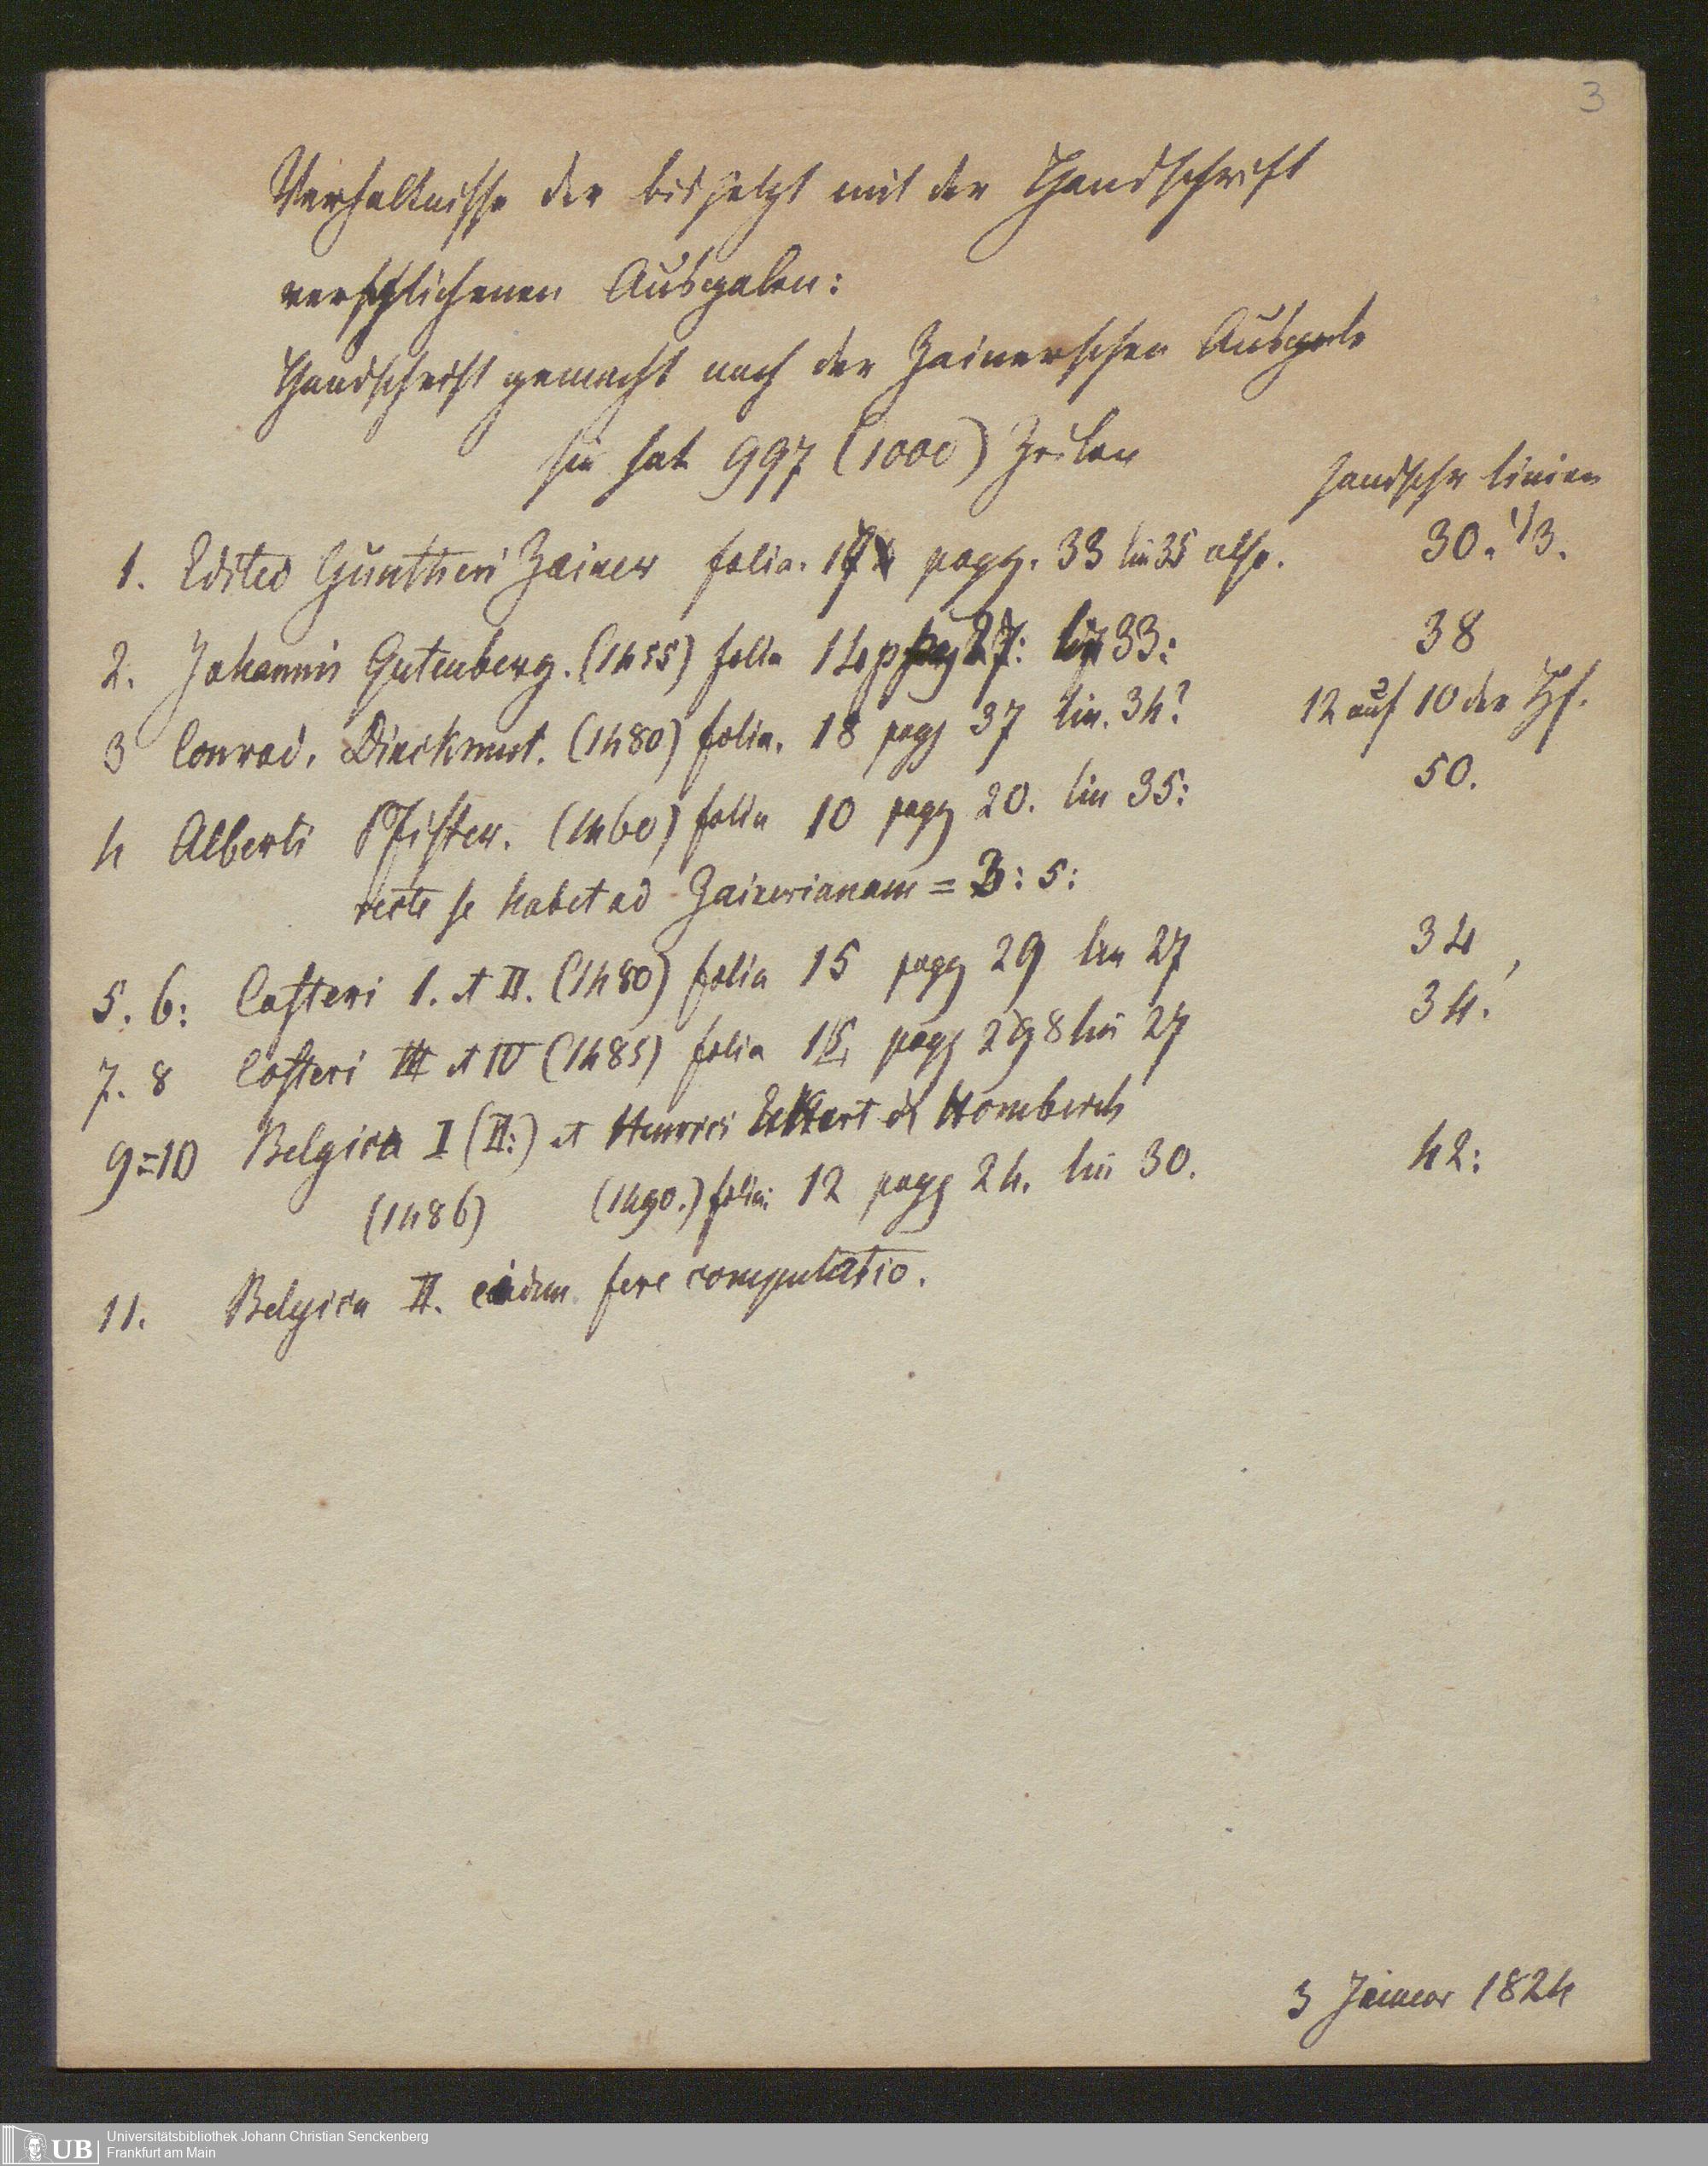 3
Verhaltnisse der bisjetzt mit der Handschrift
verglichenen Ausgaben:
Handschrift gemacht nach der Zainerschen Ausgabe
sie hat 997 (1000) Zeilen
handschr linien
1. Editio Guntheri Zainer folia. 17 pagg. 33 lin 35 also. 30. 1/3.
2. Johannis Gutenberg. (1455) folia 14 pag 27: lin 33: 38
3 Conrad. Dinckmut. (1480) folia. 18 pagg 37 lin. 34? 12 auf 10 der Hs.
4 Alberti Pfister. (1460) folia 10 pagg 20. lin 35: 50.
recte se habet ad Zainerianam = 3: 5:
5. 6: Costeri 1. et II. (1480) folia 15 pagg 29 lin 27 34
7. 8 Costeri III et IV (1485) folia 15 pagg 28 lin 27 34.
9=10 Belgica I (II:) et Henrici Eckert d Homberch
(1486) (1490.) folia: 12 pagg 24. lin 30. 42:
11. Belgica II. eadem fere computatio.
3 Januar 1824
UB Universitätsbibliothek Johann Christian Senckenberg
Frankfurt am Main